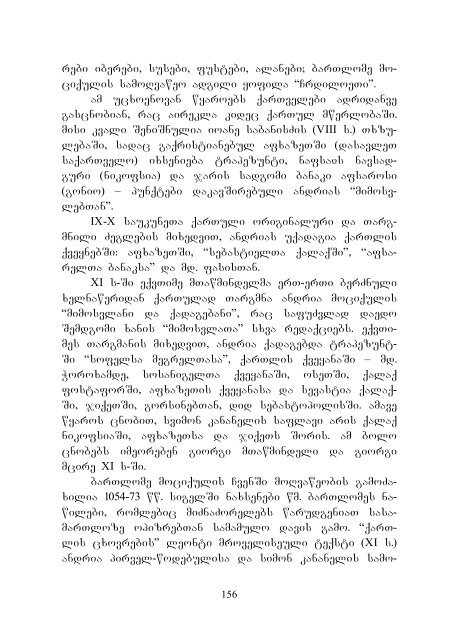 რები იბერები, სუსები, ფუსტები, ალანები; ბართლომე მო-
ციქულის სამოღვაწეო ადგილი ყოფილა “ჩრდილოეთი”.
ამ უცხოენოვან წყაროებს ქართველები ადრიდანვე
გასცნობიან, რაც აირეკლა კიდეც ქართულ მწერლობაში.
მისი კვალი შენიშნულია იოანე საბანისძის (VIII ს.) თხზუ-
ლებაში, სადაც გაქრისტიანებულ აფხაზეთში (დასავლეთ
საქართველო) იხსენიება ტრაპეზუნტი, ნაფსაჲს ნავსად-
გური (ნიკოფსია) და ჯარის სადგომი ბანაკი აფსაროსი
(გონიო) – პუნქტები დაკავშირებული ანდრიას “მიმოსვ-
ლებთან”.
IX-X საუკუნეთა ქართული ორიგინალური და თარგ-
მნილი ძეგლების მიხედვით, ანდრიას უქადაგია ქართლის
ქვეყნებში: აფხაზეთში, “სებასტიელთა ქალაქში”, “აფსა-
რელთა ბანაკსა” და მდ. ფასისთან.
XI ს-ში ექვთიმე მთაწმინდელმა ერთ-ერთი ბერძნული
ხელნაწერიდან ქართულად თარგმნა ანდრია მოციქულის
“მიმოსვლანი და ქადაგებანი”, რაც საფუძვლად დაედო
შემდგომი ხანის “მიმოსვლათა” სხვა რედაქციებს. ექვთი-
მეს თარგმანის მიხედვით, ანდრია ქადაგებდა ტრაპეზუნტ-
ში “სოფელსა მეგრელთასა”, ქართლის ქვეყანაში – მდ.
ჭოროხამდე, სოსანიგელთა ქვეყანაში, ოსეთში, ქალაქ
ფოსტაფორში, აფხაზეთის ქვეყანასა და სევასტია ქალაქ-
ში, ჯიქეთში, გორსინებთან, დიდ სებასტოპოლისში. ამავე
წყაროს ცნობით, სვიმონ კანანელის საფლავი არის ქალაქ
ნიკოფსიაში, აფხაზეთსა და ჯიქეთს შორის. ამ ბოლო
ცნობებს იმეორებენ გიორგი მთაწმინდელი და გიორგი
მცირე XI ს-ში.
ბართლომე მოციქულის ჩვენში მოღვაწეობის გამოძა-
ხილია 1054-73 წწ. სიგელში ნახსენები წმ. ბართლომეს ნა-
წილები, რომლებიც მიძნაძორელებს წარუდგენიათ სასა-
მართლოზე ოპიზრებთან სამამულო დავის გამო. “ქართ-
ლის ცხოვრების” ლეონტი მროველისეული ტექსტი (XI ს.)
ანდრია პირველ-წოდებულისა და სიმონ კანანელის სამო-
156